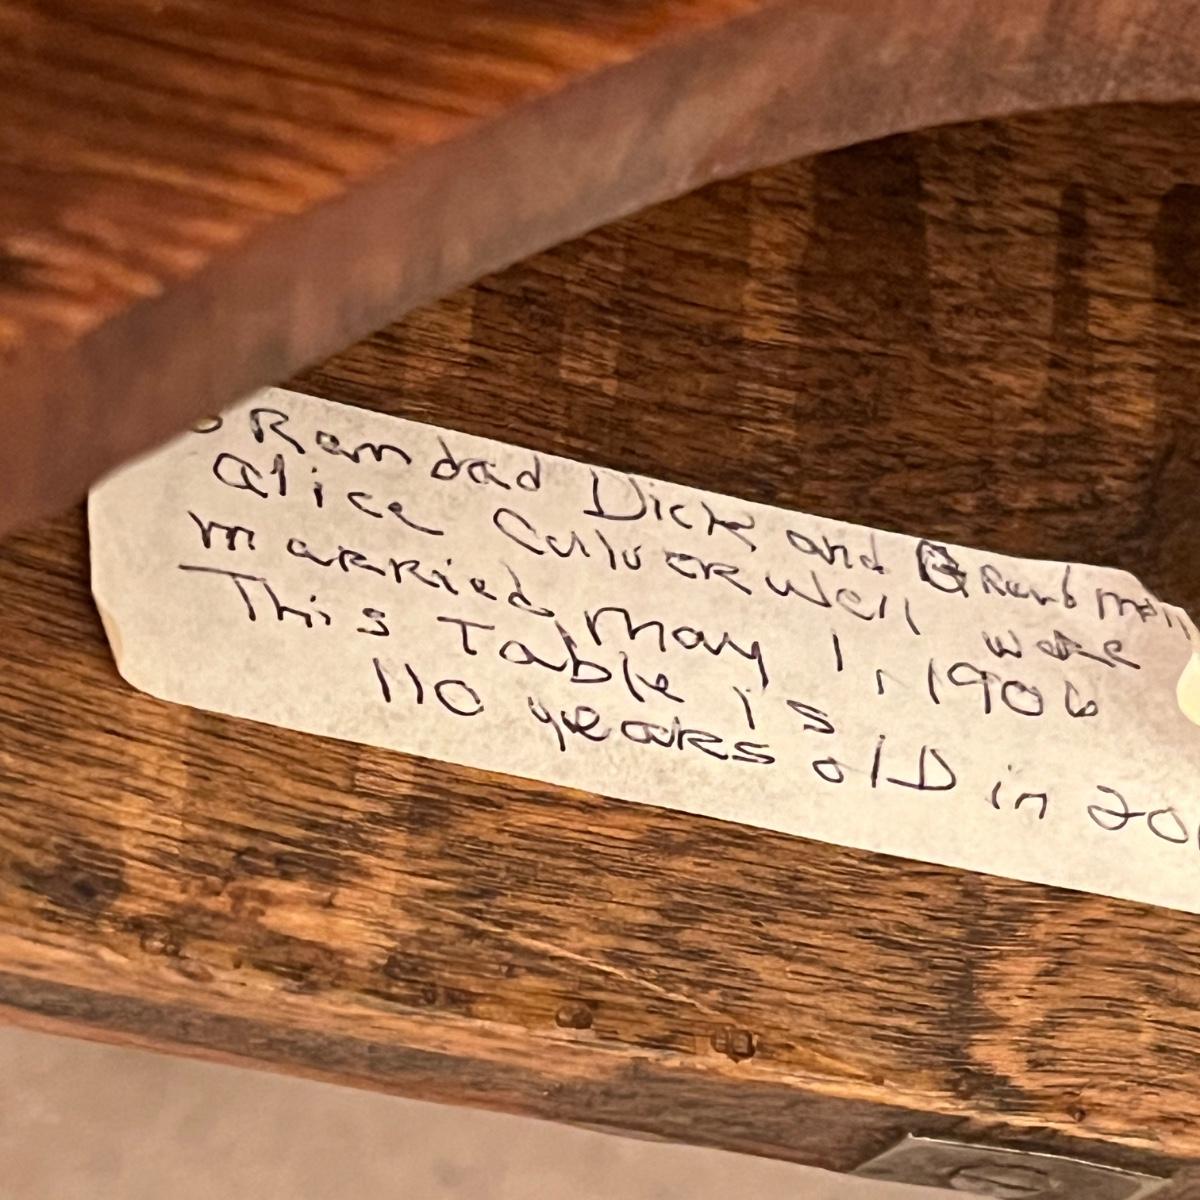 GRandad Dick and GRandmom
alice CulveRwell were
maRRied May 1, 1906
This Table is
110 yeaRs olD in 20